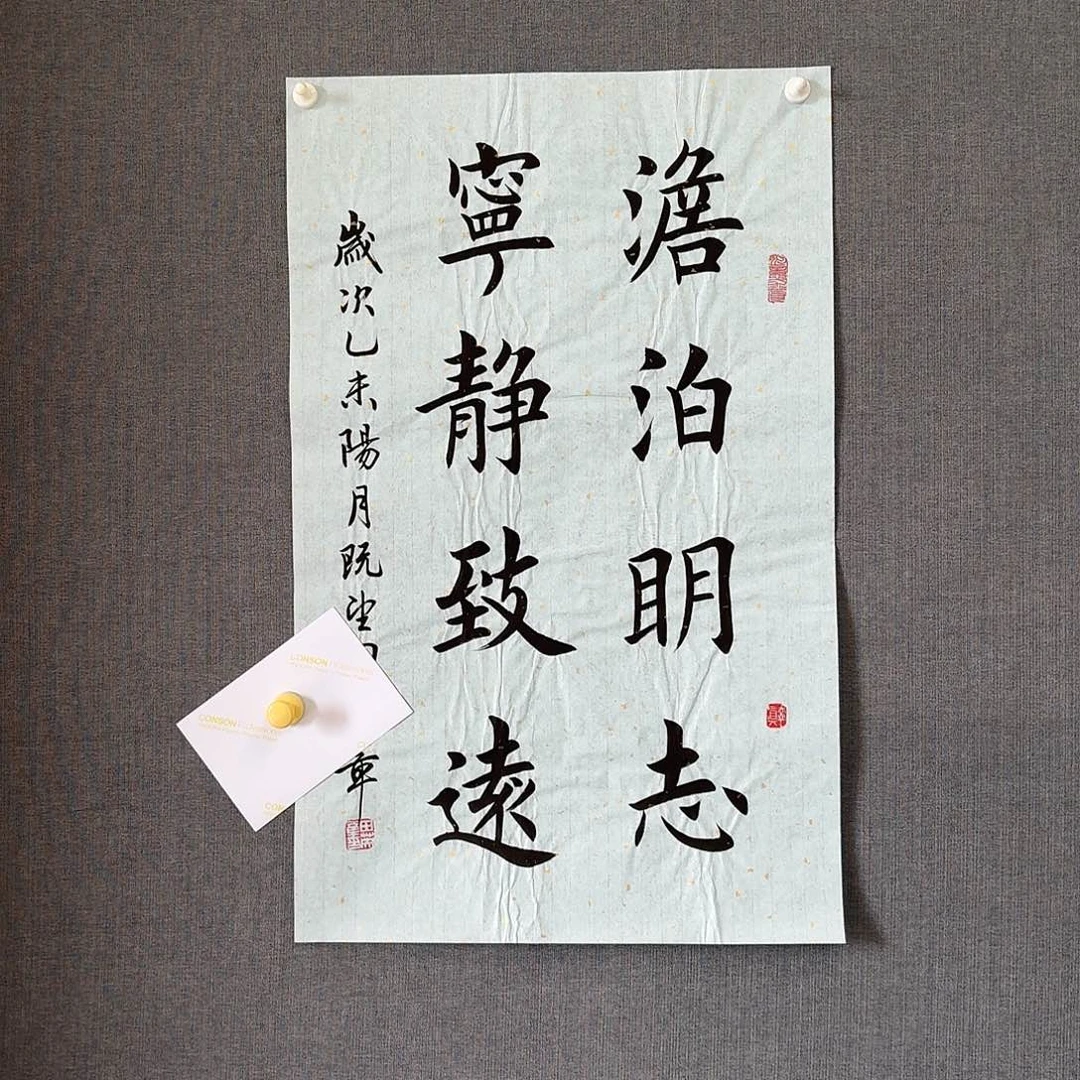 澹泊明志
寧静致遠
歲次乙未陽月既望
章
CONSON
CONSON